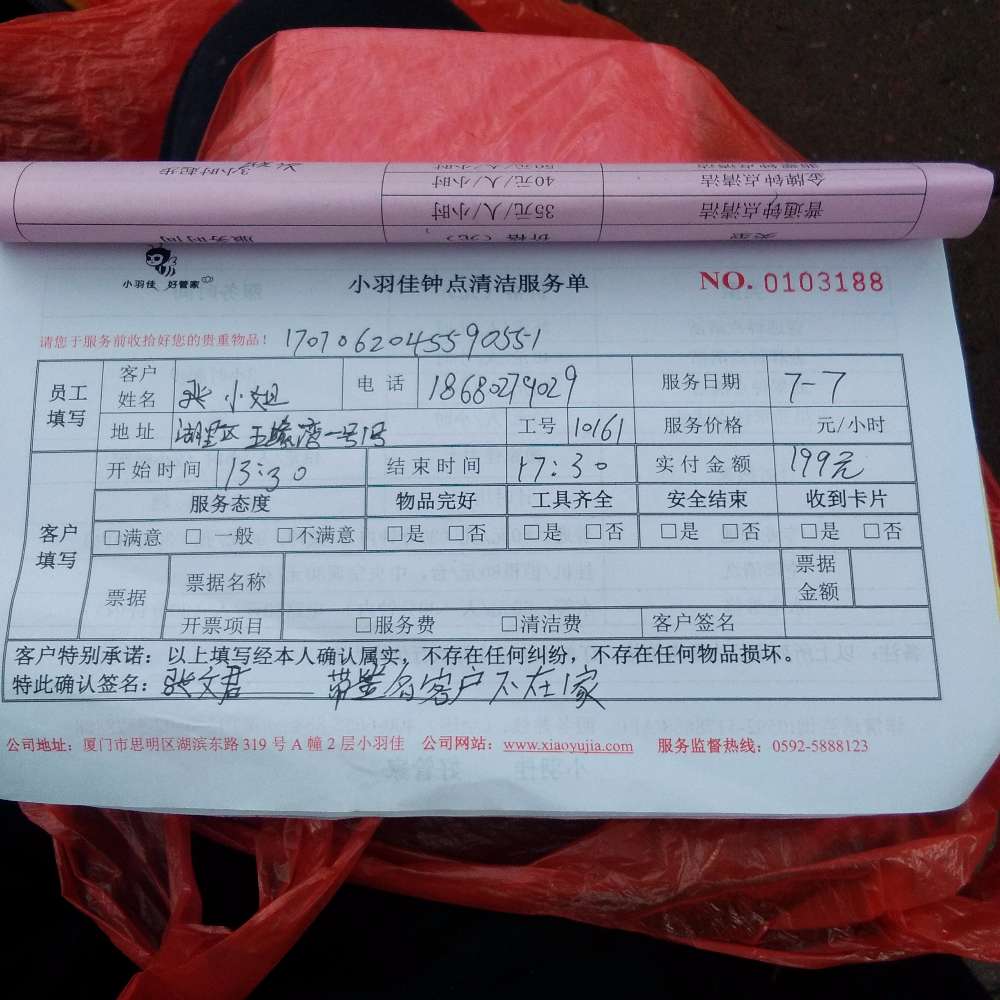 3小时起步 50元/人/小时
40元/人/小时 金牌钟点清洁
35元/人/小时 普通钟点清洁
服务时间 价格(元) 类型
小羽佳 好管家 小羽佳钟点清洁服务单 NO. 0103188
请您于服务前收拾好您的贵重物品! 17070620455590551
员工填写 客户姓名 张小姐 电话 18680279029 服务日期 7-7
地址 湖里区 一号1号 工号 10161 服务价格 元/小时
开始时间 13:30 结束时间 17:30 实付金额 199元
客户填写 服务态度 物品完好 工具齐全 安全结束 收到卡片
□满意 □一般 □不满意 □是 □否 □是 □否 □是 □否 □是 □否
票据 票据名称 票据金额
开票项目 □服务费 □清洁费 客户签名
客户特别承诺:以上填写经本人确认属实,不存在任何纠纷,不存在任何物品损坏。
特此确认签名:张文君 带签名客户不在家
公司地址:厦门市思明区湖滨东路 319 号 A 幢 2 层小羽佳 公司网站:www.xiaoyujia.com 服务监督热线:0592-5888123